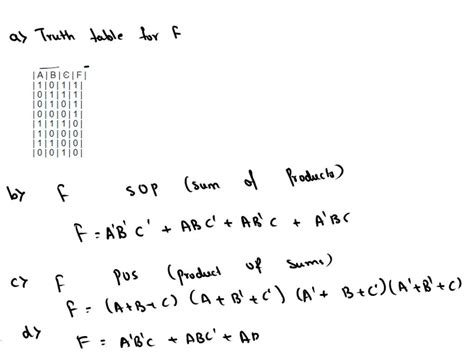 a) Truth table for F
|A|B|C|F|
|1|0|1|1|
|0|1|1|1|
|0|1|0|1|
|0|0|0|1|
|1|1|1|0|
|1|0|0|0|
|1|1|0|0|
|0|0|1|0|
b) F SOP (sum of Products)
F = A'B'C' + ABC' + AB'C + A'BC
c) F POS (product of sums)
F = (A+B+C) (A+B'+C') (A'+B+C')(A'+B'+C)
d) F = A'B'C + ABC' + AB